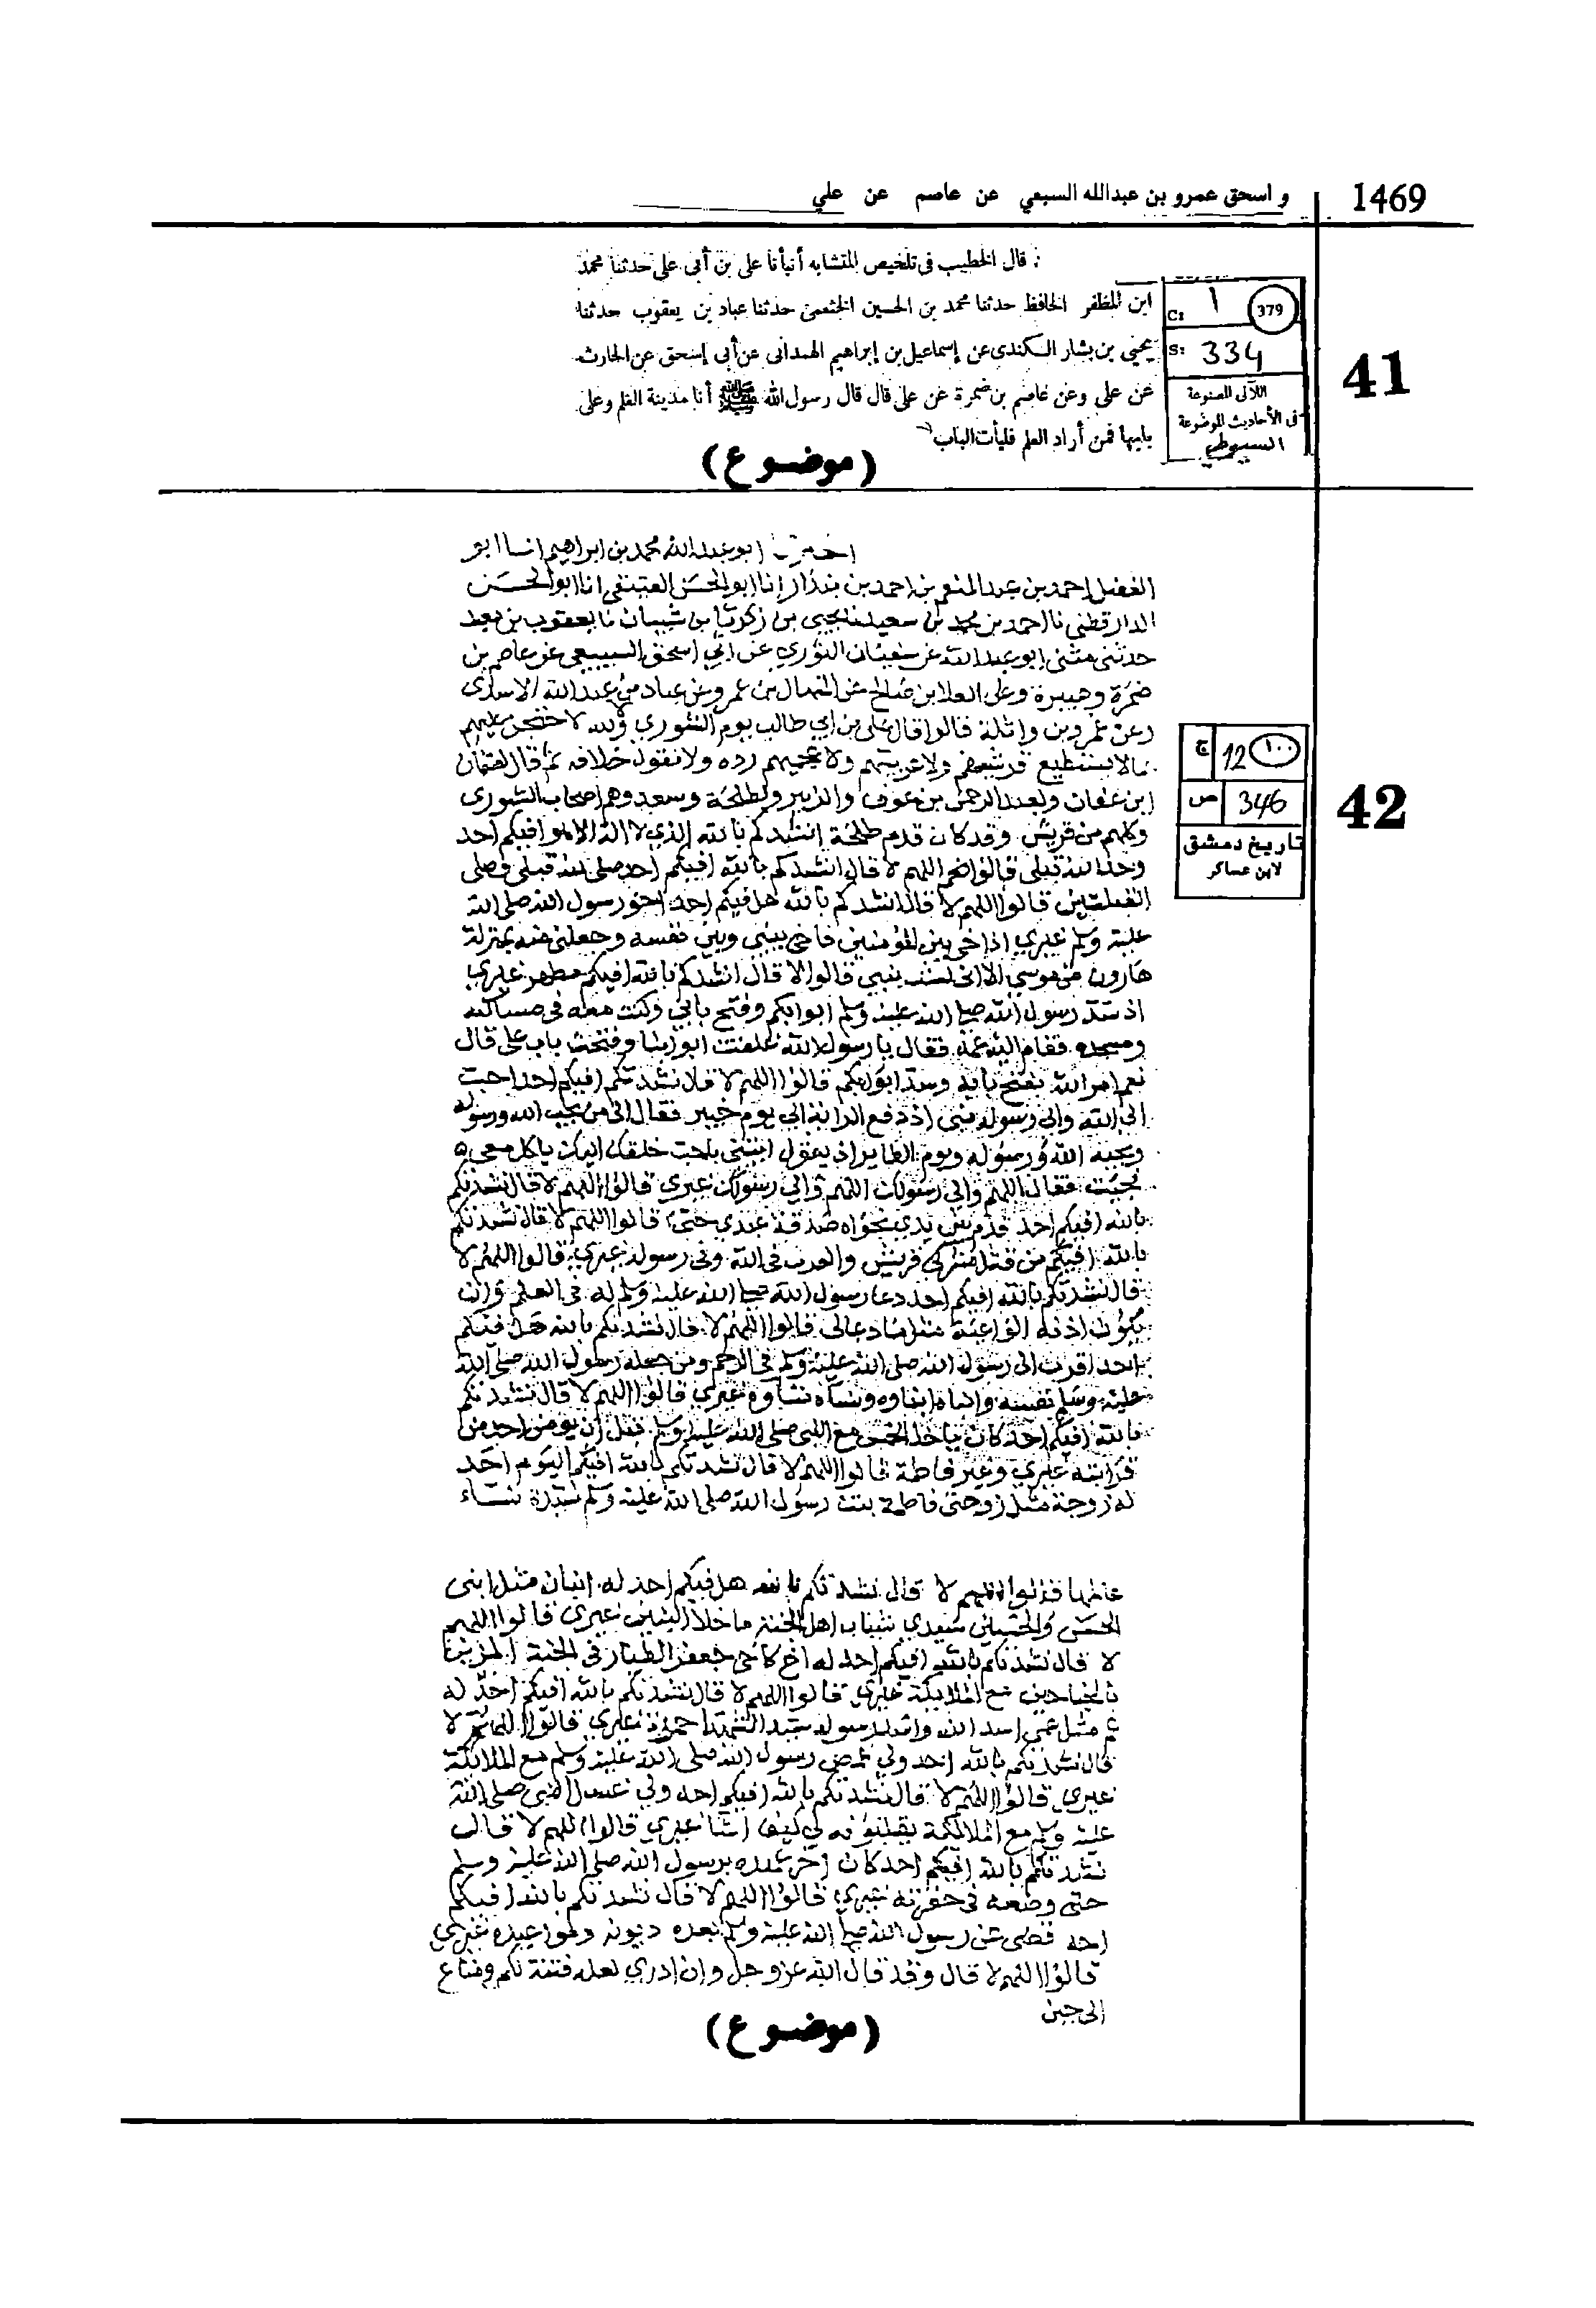 1469
و اسحق عمرو بن عبدالله السبعي عن عاصم عن علي
41
379
C: ١
S: 334
اللآلى المصنوعة
فى الأحاديث الموضوعة
السيوطي
قال الخطيب فى تلخيص المتشابه أنبأنا على بن أبى على حدثنا محمد
ابن المظفر الحافظ حدثنا محمد بن الحسين الخثعمى حدثنا عباد بن يعقوب حدثنا
يحيى بن بشار الكندى عن إسماعيل بن إبراهيم الهمدانى عن أبى إسحق عن الحارث
عن على وعن عاصم بن ضمرة عن على قال قال رسول الله ﷺ أنا مدينة العلم وعلى
بابها فمن أراد العلم فليأت الباب
(موضوع)
42
١٠٠
12 ج
346 ص
تاريخ دمشق
لابن عساكر
ابو عبد الله محمد بن ابراهيم انا ابو
الفضل احمد بن عبد المنعم بن احمد بن بندار انا ابو الحسن العتيقي انا ابو الحسن
الدارقطني نا احمد بن محمد بن سعيد نا يحيى بن زكريا بن شيبان نا يعقوب بن معبد
حدثني مثنى ابو عبد الله عن سفيان الثوري عن ابي اسحق السبيعي عن عاصم بن
ضمرة وهبيرة وعن العلا بن صالح عن المنهال بن عمرو عن عباد بن عبد الله الاسدى
وعن عمرو بن واثلة قالوا قال علي بن ابي طالب يوم الشورى والله لاحتجن عليهم
بمالا يستطيع قرشيهم ولا عربيهم ولا عجميهم رده ولا يقول خلافه ثم قال لعثمان
ابن عفان ولعبد الرحمن بن عوف والزبير ولطلحة وسعد وهم اصحاب الشورى
وكلهم من قريش وقد كان قدم طلحة انشدكم بالله الذي لا اله الا هو افيكم احد
وحد الله قبلي قالوا اللهم لا قال انشدكم بالله افيكم احد صلى لله قبلي وصلى
القبلتين قالوا اللهم لا قال انشدكم بالله هل فيكم احد اخو رسول الله صلى الله
عليه وسلم غيري اذ اخى بين المؤمنين فاخى بيني وبين نفسه وجعلني منه بمنزلة
هارون من موسى الا اني لست بنبي قالوا لا قال انشدكم بالله افيكم مطهر غيري
اذ سد رسول الله صلى الله عليه وسلم ابوابكم وفتح بابي وكنت معه في مساكنه
ومسجده فقام اليه عمه فقال يا رسول الله غلقت ابوابنا وفتحت باب علي قال
نعم الله امر بفتح بابه وسد ابوابكم قالوا اللهم لا قال نشدتكم افيكم احد احب
الى الله والى رسوله مني اذ دفع الراية الي يوم خيبر فقال من يحب الله ورسوله
ويحبه الله ورسوله ويوم الطاير اذ يقول ايتني باحب خلقك اليك ياكل معي
فجيت فقال اللهم والى رسولك اللهم والى رسولك غيري قالوا اللهم لا قال نشدتكم
بالله افيكم احد قدم بين يدي نجواه صدقة غيري حتى قالوا اللهم لا قال نشدتكم
بالله افيكم من قتل مشركي قريش والعرب في الله وفي رسوله غيري قالوا اللهم لا
قال نشدتكم بالله افيكم احد دعا رسول الله صلى الله عليه وسلم له في العلم وان
يكون اذنه الواعية مثل ما دعا لي قالوا اللهم لا قال نشدتكم بالله هل فيكم
احد اقرب الى رسول الله صلى الله عليه وسلم في الرحم ومن جعله رسول الله صلى الله
عليه وسلم نفسه وابناه ابناوه ونساه نساوه غيري قالوا اللهم لا قال نشدتكم
بالله افيكم احد كان ياخذ الخمس مع النبي صلى الله عليه وسلم قبل ان يومن احد من
قرابته غيري وغير فاطمة قالوا اللهم لا قال نشدتكم بالله افيكم اليوم احد
له زوجة مثل زوجتى فاطمة بنت رسول الله صلى الله عليه وسلم سيدة نساء
عالمها قالوا اللهم لا قال نشدتكم بالله هل فيكم احد له ابنان مثل ابني
الحسن والحسين سيدي شباب اهل الجنة ما خلا النبيين غيري قالوا اللهم
لا قال نشدتكم بالله افيكم احد له اخ كاخي جعفر الطيار في الجنة المزين
بالجناحين مع الملايكة غيري قالوا اللهم لا قال نشدتكم بالله افيكم احد له
عم مثل عمي اسد الله واسد رسوله سيد الشهداء حمزة غيري قالوا اللهم لا
قال نشدتكم بالله احد ولي غمض رسول الله صلى الله عليه وسلم مع الملائكة
غيري قالوا اللهم لا قال نشدتكم بالله افيكم احد ولي غسل النبي صلى الله
عليه وسلم مع الملائكة يقلبونه لي كيف اشا غيري قالوا اللهم لا قال
نشدتكم بالله افيكم احد كان اخر عهده برسول الله صلى الله عليه وسلم
حتى وضعه في حفرته غيري قالوا اللهم لا قال نشدتكم بالله افيكم
احد قضى عن رسول الله صلى الله عليه وسلم بعده ديونه ومواعيده غيري
قالوا اللهم لا قال وقد قال الله عز وجل وان ادري لعله فتنة لكم ومتاع
الى حين
(موضوع)